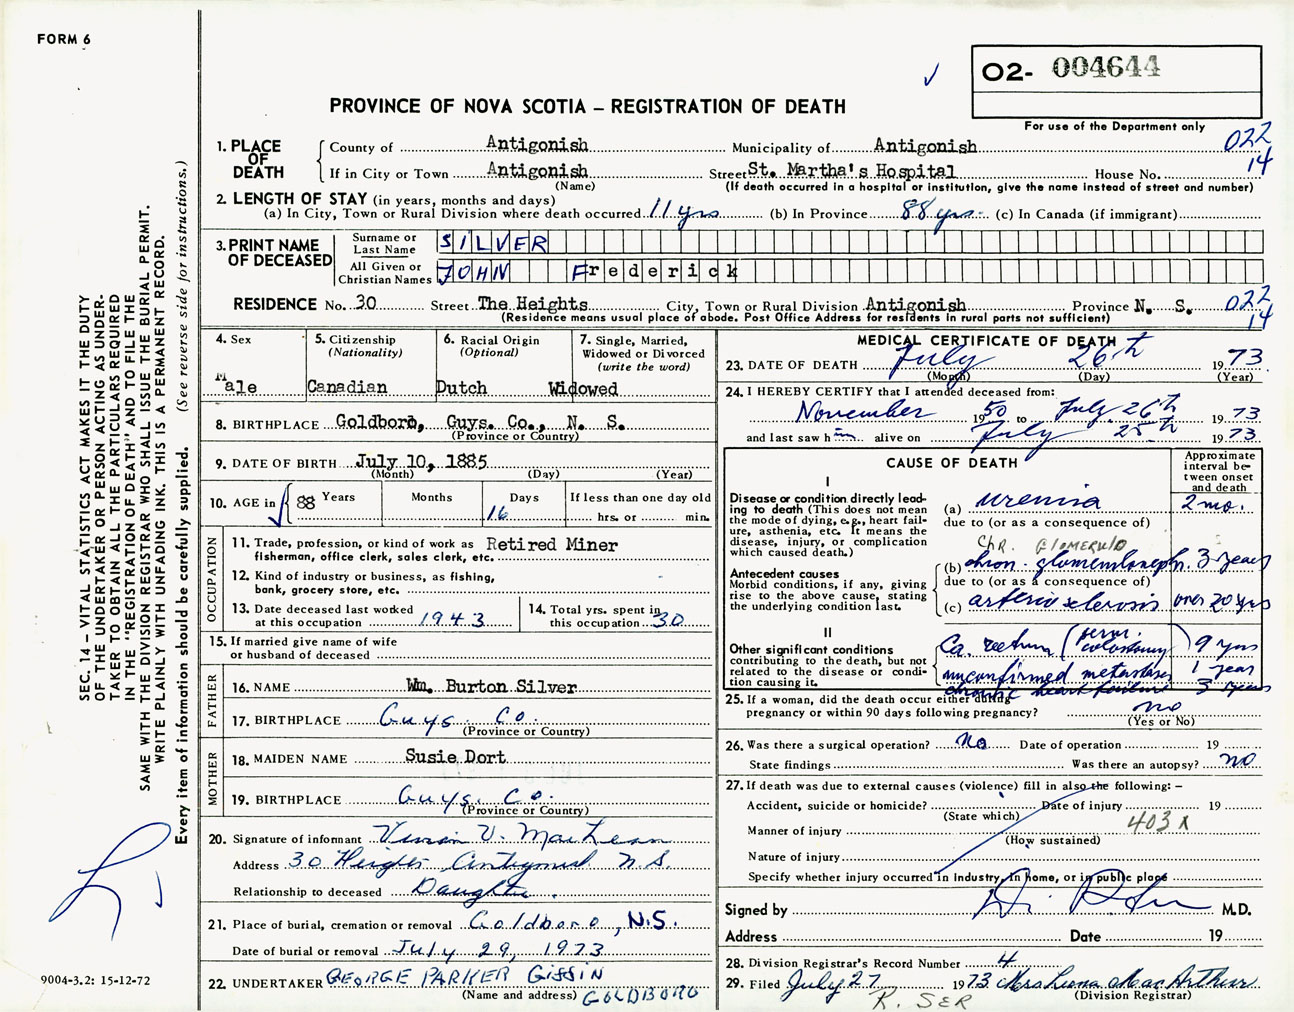 FORM 6
O2- 004644
PROVINCE OF NOVA SCOTIA – REGISTRATION OF DEATH
For use of the Department only
1. PLACE OF DEATH
County of Antigonish Municipality of Antigonish 022
If in City or Town Antigonish Street St. Martha's Hospital House No. 14
(Name) (If death occurred in a hospital or institution, give the name instead of street and number)
2. LENGTH OF STAY (in years, months and days)
(a) In City, Town or Rural Division where death occurred 11 yrs (b) In Province 88 yrs. (c) In Canada (if immigrant)
3. PRINT NAME OF DECEASED
Surname or Last Name SILVER
All Given or Christian Names JOHN Frederick
RESIDENCE No. 30 Street The Heights City, Town or Rural Division Antigonish Province N. S. 022
(Residence means usual place of abode. Post Office Address for residents in rural parts not sufficient) 14
4. Sex
Male
5. Citizenship
(Nationality)
Canadian
6. Racial Origin
(Optional)
Dutch
7. Single, Married,
Widowed or Divorced
(write the word)
Widowed
8. BIRTHPLACE Goldboro, Guys. Co., N. S.
(Province or Country)
9. DATE OF BIRTH July 10, 1885
(Month) (Day) (Year)
10. AGE in 88 Years Months Days 16 If less than one day old
hrs. or min.
OCCUPATION
11. Trade, profession, or kind of work as Retired Miner
fisherman, office clerk, sales clerk, etc.
12. Kind of industry or business, as fishing,
bank, grocery store, etc.
13. Date deceased last worked
at this occupation 1943
14. Total yrs. spent in
this occupation 30
15. If married give name of wife
or husband of deceased
FATHER
16. NAME Wm. Burton Silver
17. BIRTHPLACE Guys. Co.
(Province or Country)
MOTHER
18. MAIDEN NAME Susie Dort
19. BIRTHPLACE Guys. Co.
(Province or Country)
20. Signature of informant V. MacLean
Address 30 Heights Antigonish N.S.
Relationship to deceased Daughter.
21. Place of burial, cremation or removal Goldboro, N.S.
Date of burial or removal July 29, 1973
22. UNDERTAKER GEORGE PARKER GIFFIN
(Name and address) GOLDBORO
MEDICAL CERTIFICATE OF DEATH
23. DATE OF DEATH July 26th 1973
(Month) (Day) (Year)
24. I HEREBY CERTIFY that I attended deceased from:
November 1950 to July 26th 1973
and last saw him alive on July 25th 1973
CAUSE OF DEATH
Approximate interval between onset and death
I
Disease or condition directly leading to death (This does not mean the mode of dying, e.g., heart failure, asthenia, etc. It means the disease, injury, or complication which caused death.)
(a) uremia 2 mo.
due to (or as a consequence of)
CHR. GLOMERULO
Antecedent causes
Morbid conditions, if any, giving rise to the above cause, stating the underlying condition last.
(b) chron. glomeruloneph. 3 years
due to (or as a consequence of)
(c) arteriosclerosis over 20 yrs
II
Other significant conditions
contributing to the death, but not related to the disease or condition causing it.
Ca. rectum (perm. colostomy) 9 yrs
unconfirmed metastases 1 year
chronic heart failure 3 years
25. If a woman, did the death occur either during
pregnancy or within 90 days following pregnancy? no
(Yes or No)
26. Was there a surgical operation? No Date of operation 19
State findings Was there an autopsy? no
27. If death was due to external causes (violence) fill in also the following: –
Accident, suicide or homicide? Date of injury 19
(State which)
Manner of injury 403X
(How sustained)
Nature of injury
Specify whether injury occurred in Industry, in home, or in public place
Signed by M.D.
Address Date 19
28. Division Registrar's Record Number 4
29. Filed July 27 1973 Mrs MacArthur
(Division Registrar)
R. SER
SEC. 14 – VITAL STATISTICS ACT MAKES IT THE DUTY
OF THE UNDERTAKER OR PERSON ACTING AS UNDERTAKER
TO OBTAIN ALL THE PARTICULARS REQUIRED
IN THE "REGISTRATION OF DEATH" AND TO FILE THE
SAME WITH THE DIVISION REGISTRAR WHO SHALL ISSUE THE BURIAL PERMIT.
WRITE PLAINLY WITH UNFADING INK. THIS IS A PERMANENT RECORD.
Every item of information should be carefully supplied. (See reverse side for instructions.)
9004-3.2: 15-12-72